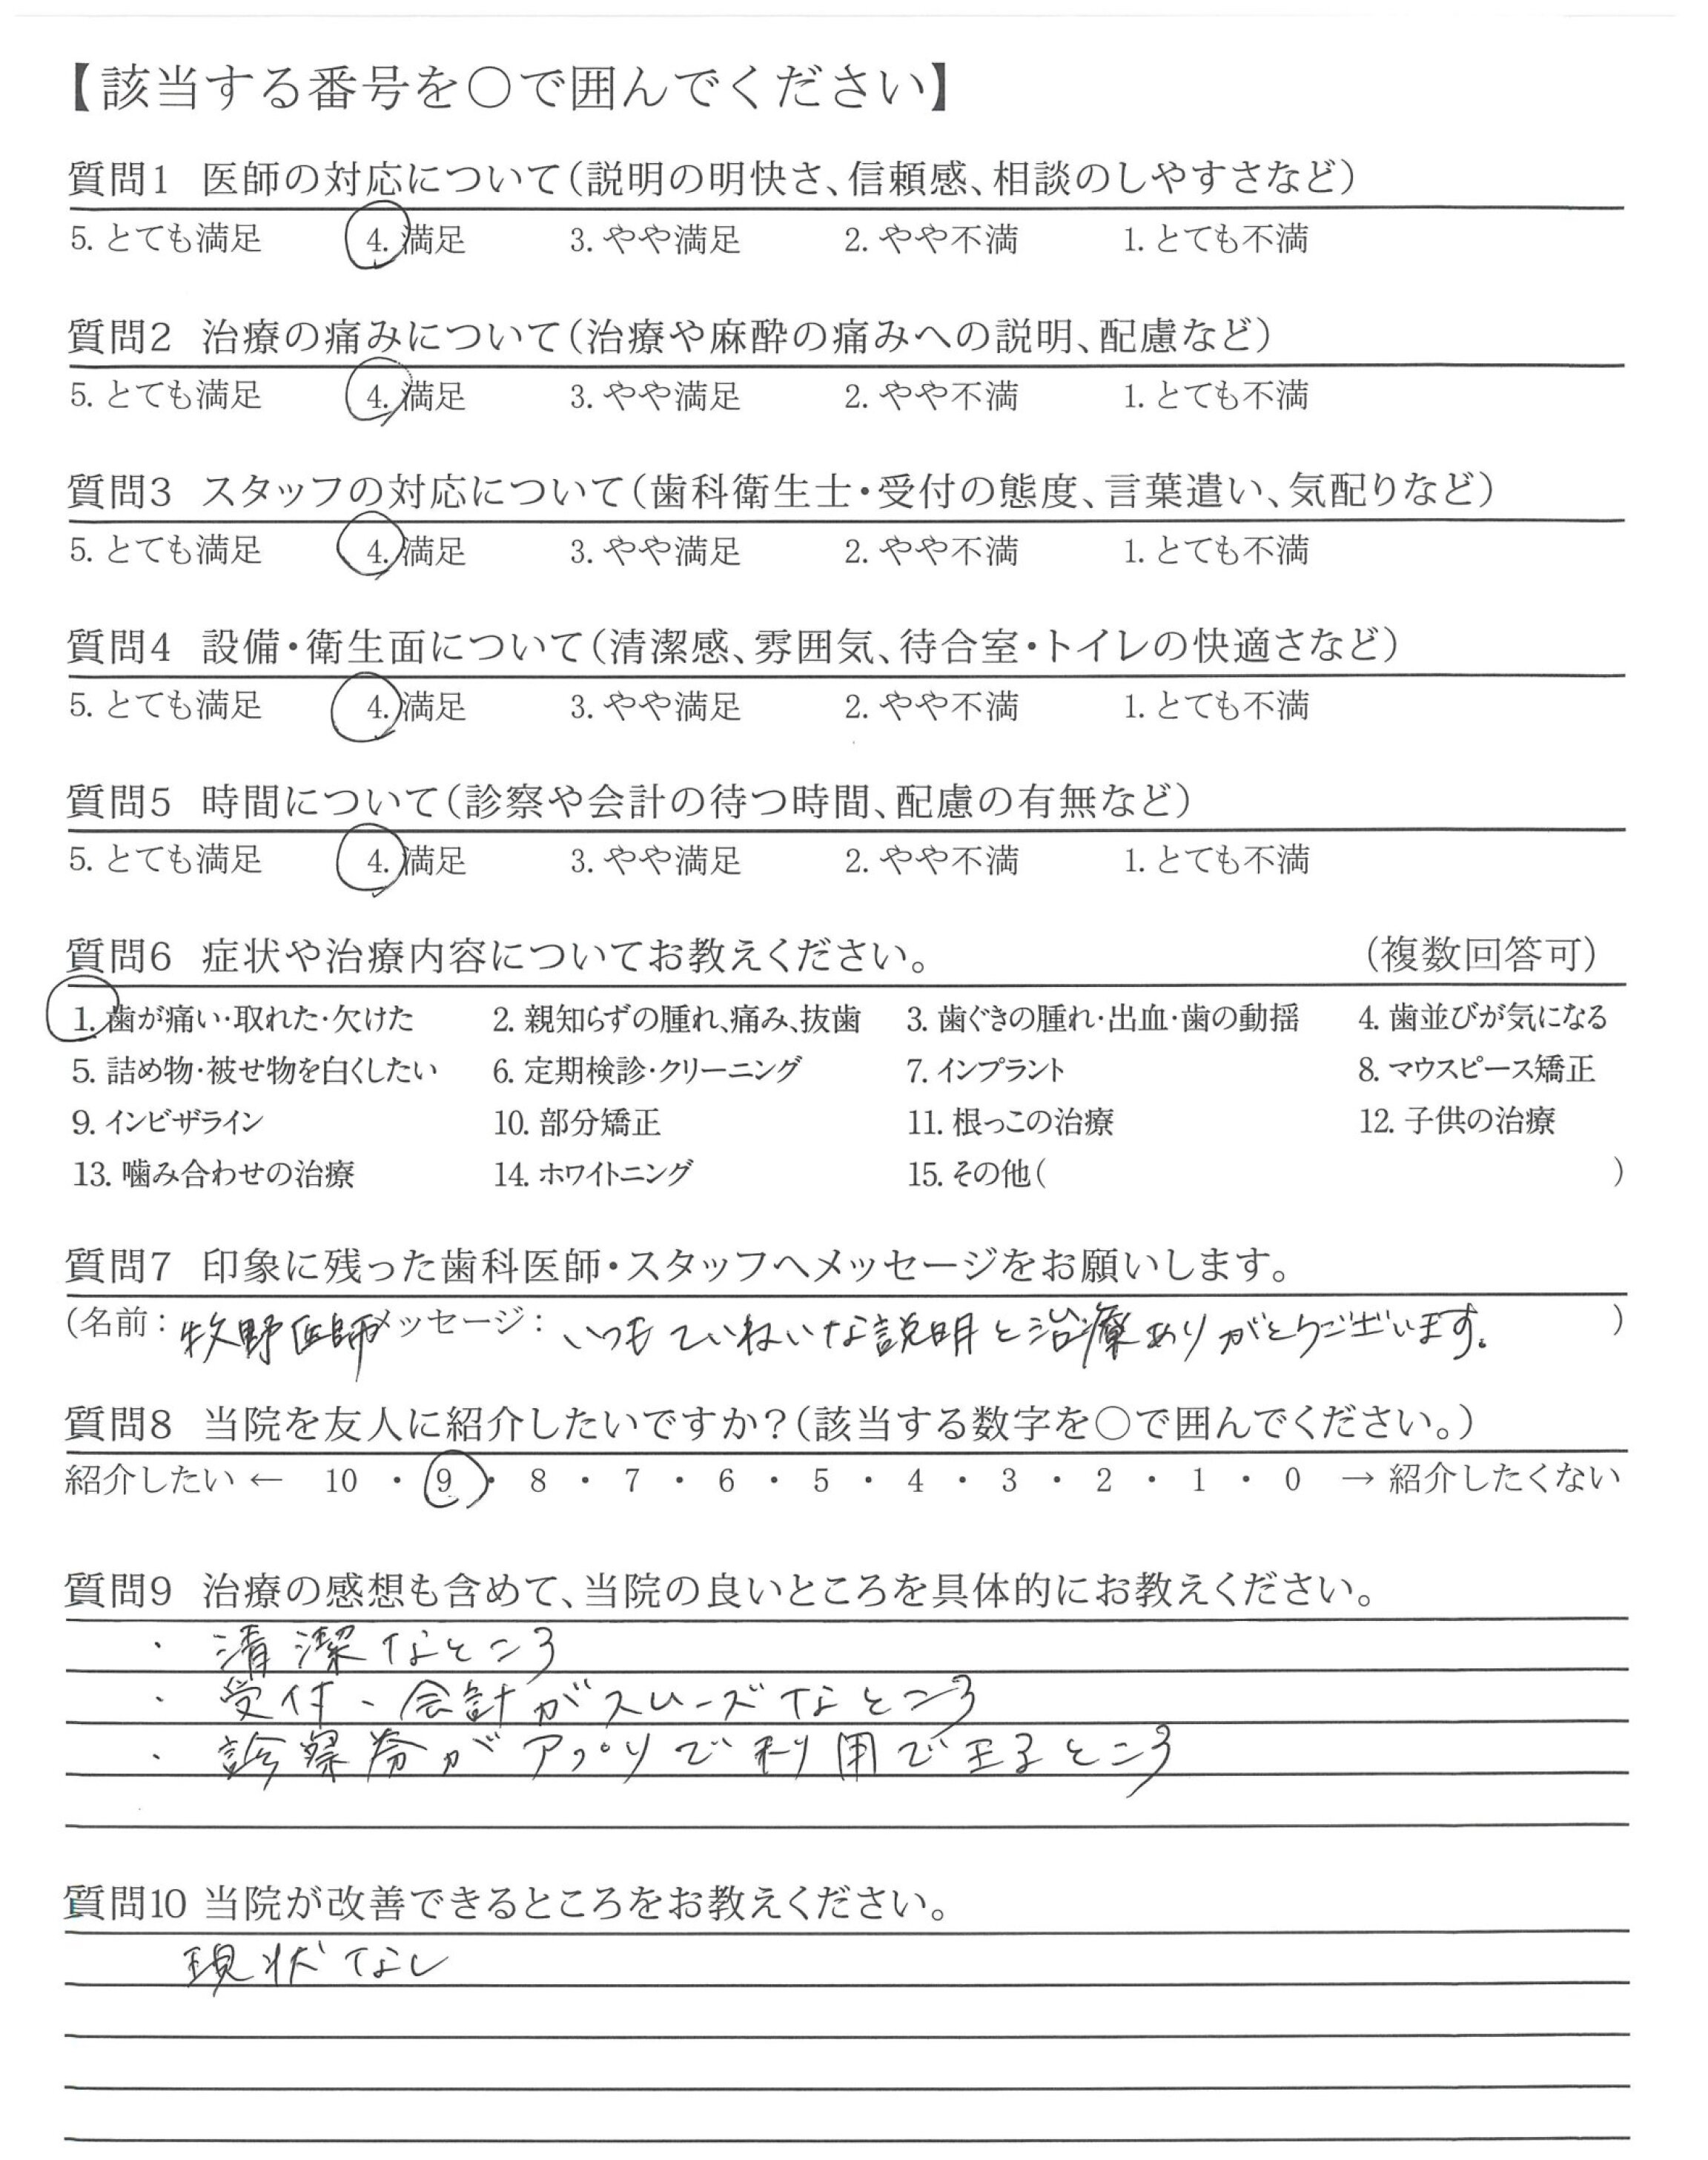 【該当する番号を○で囲んでください】
質問1 医師の対応について（説明の明快さ、信頼感、相談のしやすさなど）
5. とても満足 4. 満足 3. やや満足 2. やや不満 1. とても不満
質問2 治療の痛みについて（治療や麻酔の痛みへの説明、配慮など）
5. とても満足 4. 満足 3. やや満足 2. やや不満 1. とても不満
質問3 スタッフの対応について（歯科衛生士・受付の態度、言葉遣い、気配りなど）
5. とても満足 4. 満足 3. やや満足 2. やや不満 1. とても不満
質問4 設備・衛生面について（清潔感、雰囲気、待合室・トイレの快適さなど）
5. とても満足 4. 満足 3. やや満足 2. やや不満 1. とても不満
質問5 時間について（診察や会計の待つ時間、配慮の有無など）
5. とても満足 4. 満足 3. やや満足 2. やや不満 1. とても不満
質問6 症状や治療内容についてお教えください。 （複数回答可）
1. 歯が痛い・取れた・欠けた 2. 親知らずの腫れ、痛み、抜歯 3. 歯ぐきの腫れ・出血・歯の動揺 4. 歯並びが気になる
5. 詰め物・被せ物を白くしたい 6. 定期検診・クリーニング 7. インプラント 8. マウスピース矯正
9. インビザライン 10. 部分矯正 11. 根っこの治療 12. 子供の治療
13. 噛み合わせの治療 14. ホワイトニング 15. その他（ ）
質問7 印象に残った歯科医師・スタッフへメッセージをお願いします。
（名前：牧野医師 メッセージ：いつもていねいな説明と治療ありがとうございます。）
質問8 当院を友人に紹介したいですか？（該当する数字を○で囲んでください。）
紹介したい ← 10 ・ 9 ・ 8 ・ 7 ・ 6 ・ 5 ・ 4 ・ 3 ・ 2 ・ 1 ・ 0 → 紹介したくない
質問9 治療の感想も含めて、当院の良いところを具体的にお教えください。
・ 清潔なところ
・ 受付、会計がスムーズなところ
・ 診察券がアプリで利用できるところ
質問10 当院が改善できるところをお教えください。
現状なし